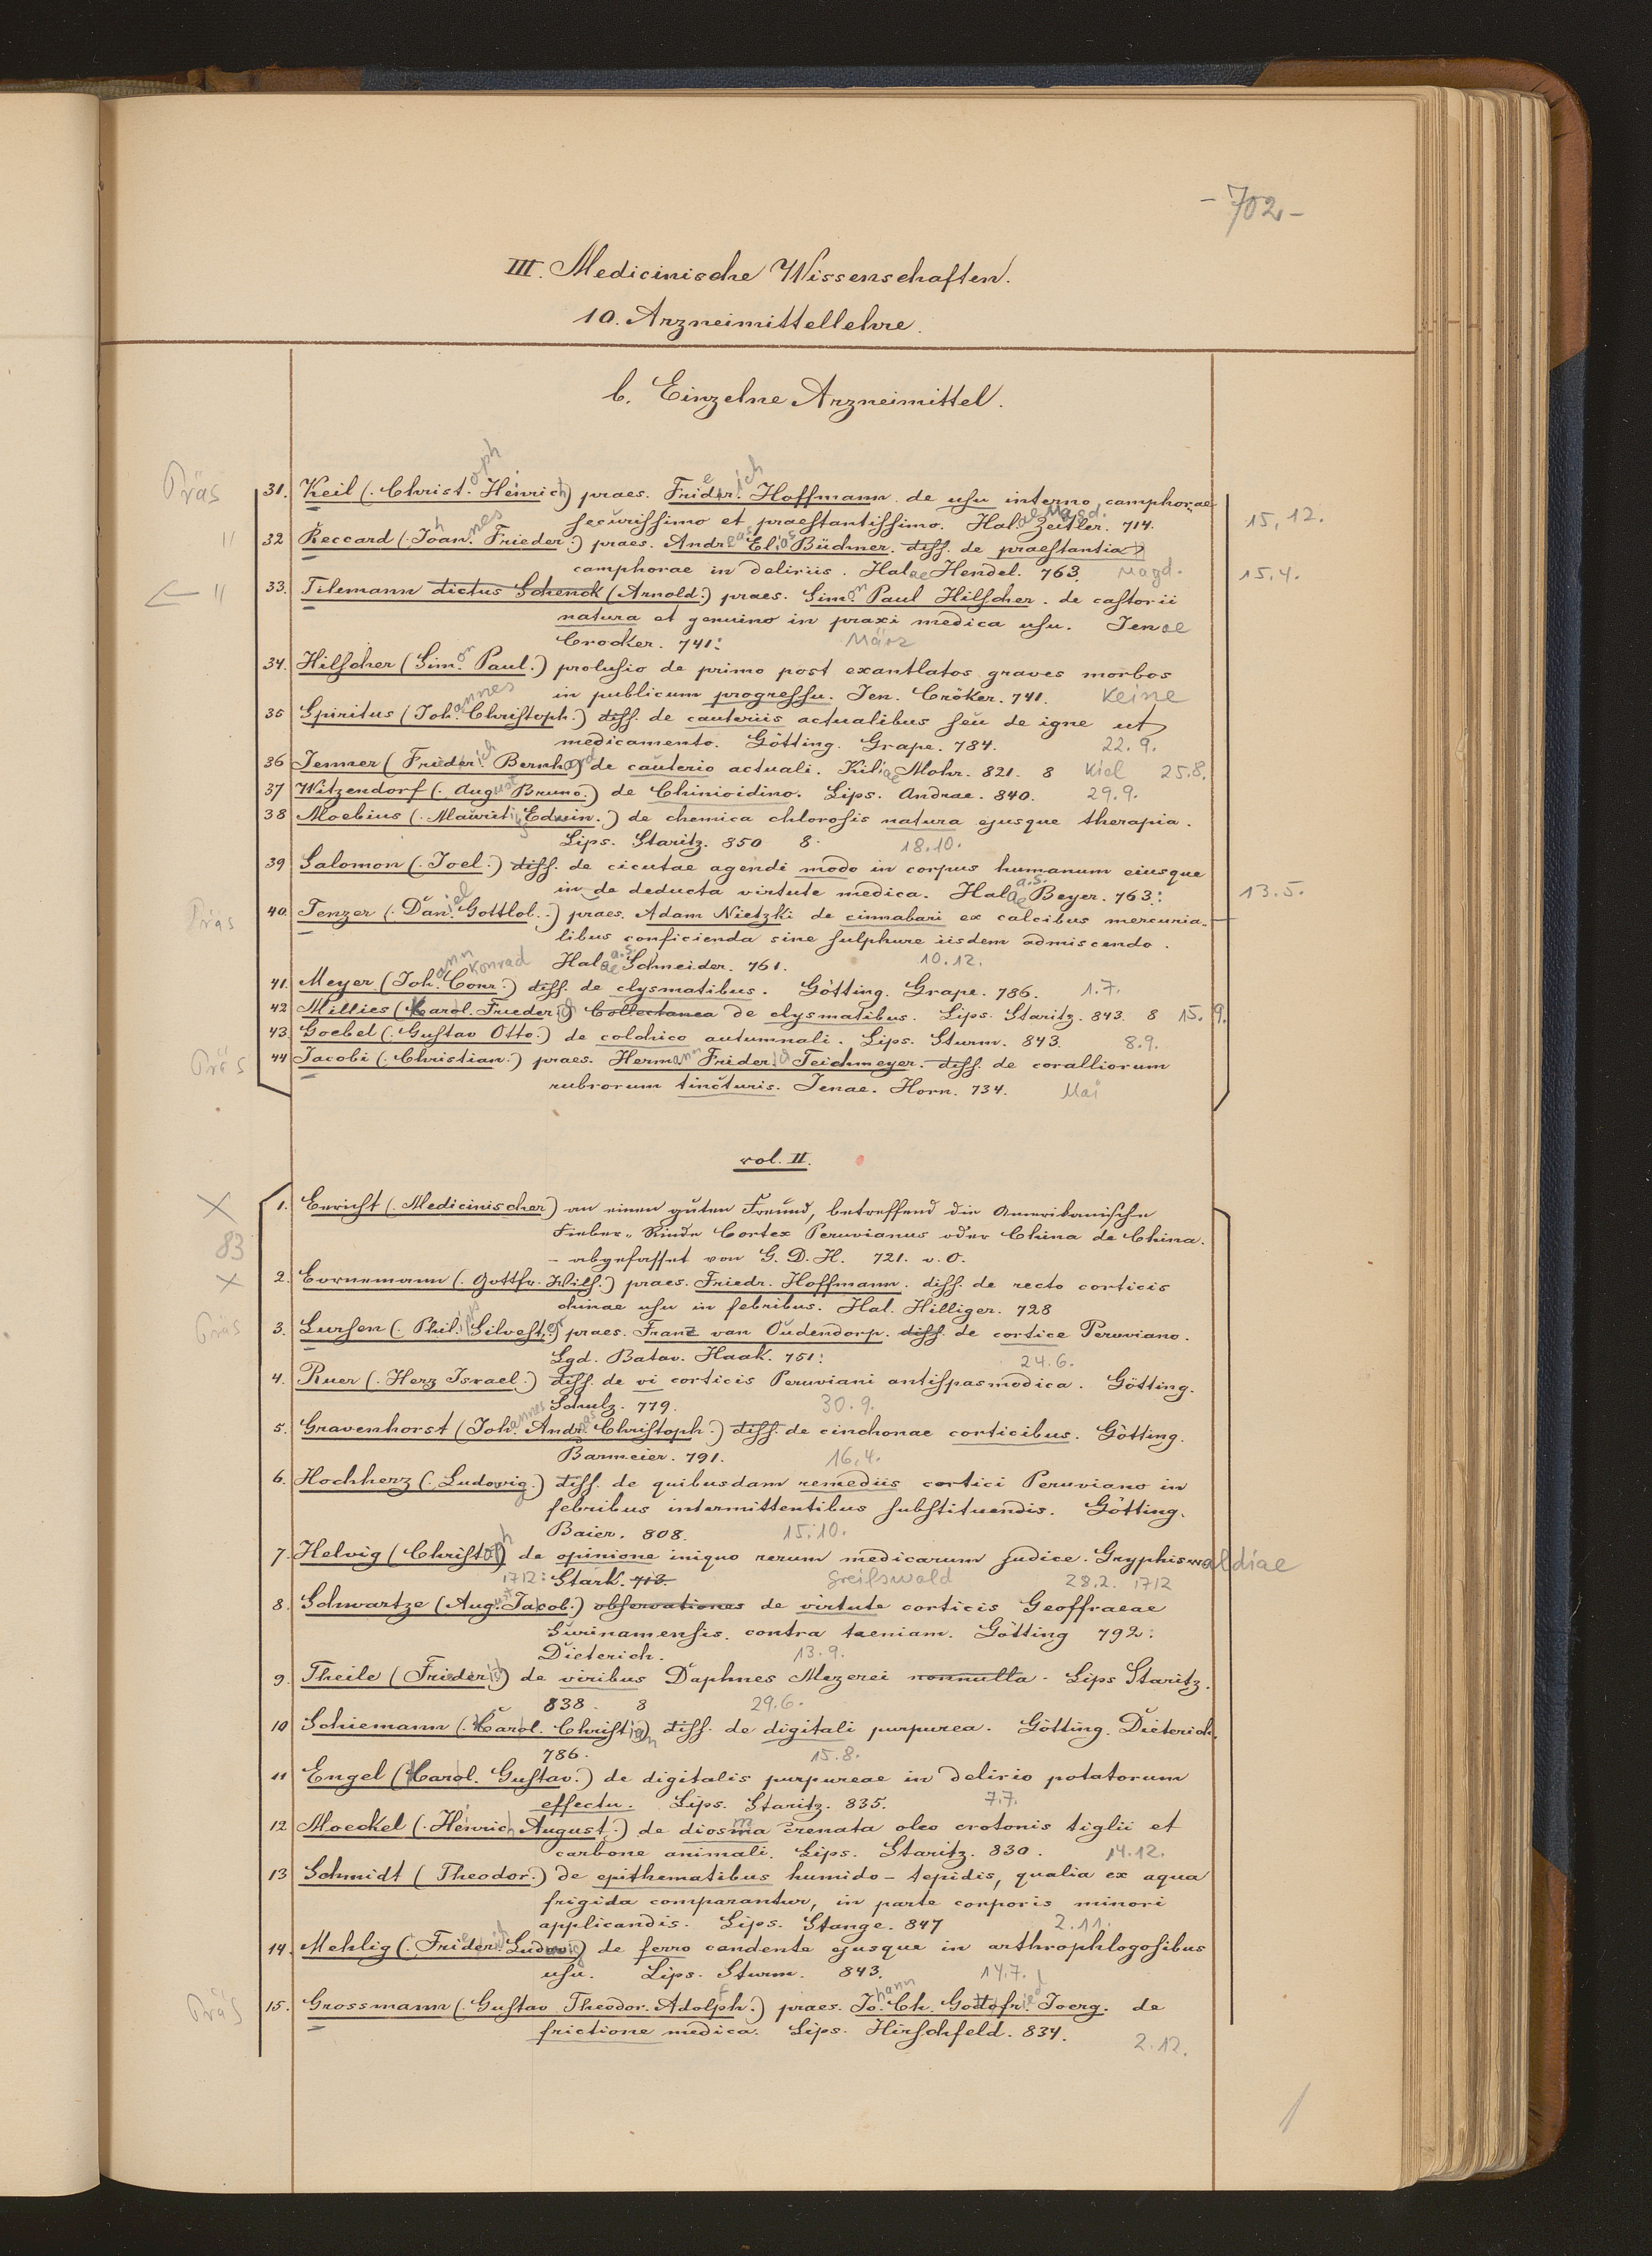 - 702 -
III. Medicinische Wissenschaften.
10. Arzneimittellehre.
b. Einzelne Arzneimittel.
Präs 31. Keil (. Christ.oph Heinrich) praes. Friederich Hoffmann. de usu interno camphorae
securissimo et praestantissimo. Hal.ae Magd. Zeitler. 714. 15.12.
" 32 Reccard (. Johannes Frieder.) praes. Andreas Elias Büchner. diss. de praestantia
camphorae in deliriis. Halae Hendel. 763. Magd. 15.4.
← " 33. Tilemann dictus Schenck (Arnold.) praes. Simon Paul Hilscher. de castorii
natura et genuino in praxi medica usu. Jenae
Crocker. 741: März
34. Hilscher (Simon Paul.) prolusio de primo post exantlatos graves morbos
in publicum progressu. Jen. Cröker. 741. Keine
35 Spiritus (Johannes Christoph.) diss. de cauteriis actualibus seu de igne ut
medicamento. Götting. Grape. 784. 22.9.
36 Jenner (Friderich Bernhard) de cauterio actuali. Kiliae Mohr. 821. 8 Kiel 25.8.
37 Witzendorf (. August Bruno.) de Chinioidino. Lips. Andrae. 840. 29.9.
38 Moebius (. Maurit. Edwin.) de chemica chlorosis natura ejusque therapia.
Lips. Staritz. 850 8. 18.10.
39 Salomon (. Joel.) diss. de cicutae agendi modo in corpus humanum eiusque
in de deducta virtute medica. Halae a.S. Beyer. 763: 13.5.
Präs 40. Tenzer (. Daniel Gottlob.) praes. Adam Nietzki de cinnabari ex calcibus mercuria-
libus conficienda sine sulphure iisdem admiscendo.
Halae a.S. Schneider. 761. 10.12.
41. Meyer (Johann Conr. Konrad) diss. de clysmatibus. Götting. Grape. 786. 1.7.
42 Millies (Karol. Friederich) Collectanea de clysmatibus. Lips. Staritz. 843. 8 15.9.
43. Goebel (. Gustav Otto.) de colchico autumnali. Lips. Sturm. 843. 8.9.
Präs 44 Jacobi (. Christian.) praes. Hermann Friderich Teichmeyer. diss. de coralliorum
rubrorum tincturis. Jenae. Horn. 734. Mai
vol. II.
X 1. Bericht (. Medicinischer) an einen guten Freund, betreffend die Amerikanische
83 Fieber-Rinde Cortex Peruvianus oder China de China.
- abgefasset von G. D. H. 721. o. O.
X 2. Bornemann (. Gottfr. Wilh.) praes. Friedr. Hoffmann. diss. de recto corticis
chinae usu in febribus. Hal. Hilliger. 728
Präs 3. Lursen (. Philipp Silvester) praes. Franz van Oudendorp. diss. de cortice Peruviano.
Lgd. Batav. Haak. 751: 24.6.
4. Ruer (. Herz Israel.) diss. de vi corticis Peruviani antispasmodica. Götting.
Schulz. 779. 30.9.
5. Gravenhorst (Johannes Andreas Christoph.) diss. de cinchonae corticibus. Götting.
Barmeier. 791. 16.4.
6. Hochherz (. Ludovig.) diss. de quibusdam remediis cortici Peruviano in
febribus intermittentibus substituendis. Götting.
Baier. 808. 15.10.
7. Helvig (Christoph) de opinione iniquo rerum medicarum judice. Gryphiswaldiae
1712: Stark. 713. Greifswald 28.2. 1712
8. Schwartze (August Jacob.) observationes de virtute corticis Geoffraeae
Surinamensis. contra taeniam. Götting 792:
Dieterich. 13.9.
9. Theile (Friederich) de viribus Daphnes Mezerei nonnulla. Lips Staritz.
838. 8 29.6.
10 Schiemann (. Karol. Christian) diss. de digitali purpurea. Götting. Dieterich.
786. 15.8.
11 Engel (Karol. Gustav.) de digitalis purpureae in delirio potatorum
effectu. Lips. Staritz. 835. 7.7.
12 Moeckel (. Heinrich August.) de diosma crenata oleo crotonis tiglii et
carbone animali. Lips. Staritz. 830. 14.12.
13 Schmidt (Theodor.) de epithematibus humido-tepidis, qualia ex aqua
frigida comparantur, in parte corporis minori
applicandis. Lips. Stange. 847 2.11.
14. Mehlig (. Friederich Ludovig) de ferro candente ejusque in arthrophlogosibus
usu. Lips. Sturm. 843. 14.7.
Präs 15. Grossmann (. Gustav Theodor. Adolph.) praes. Johann Ch. Gottfried Joerg. de
frictione medica. Lips. Hirschfeld. 834. 2.12.